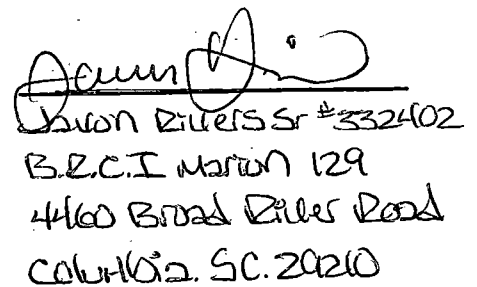 Javon Rivers Sr #332402
B.R.C.I Marion 129
4460 Broad River Road
Columbia. SC. 29210